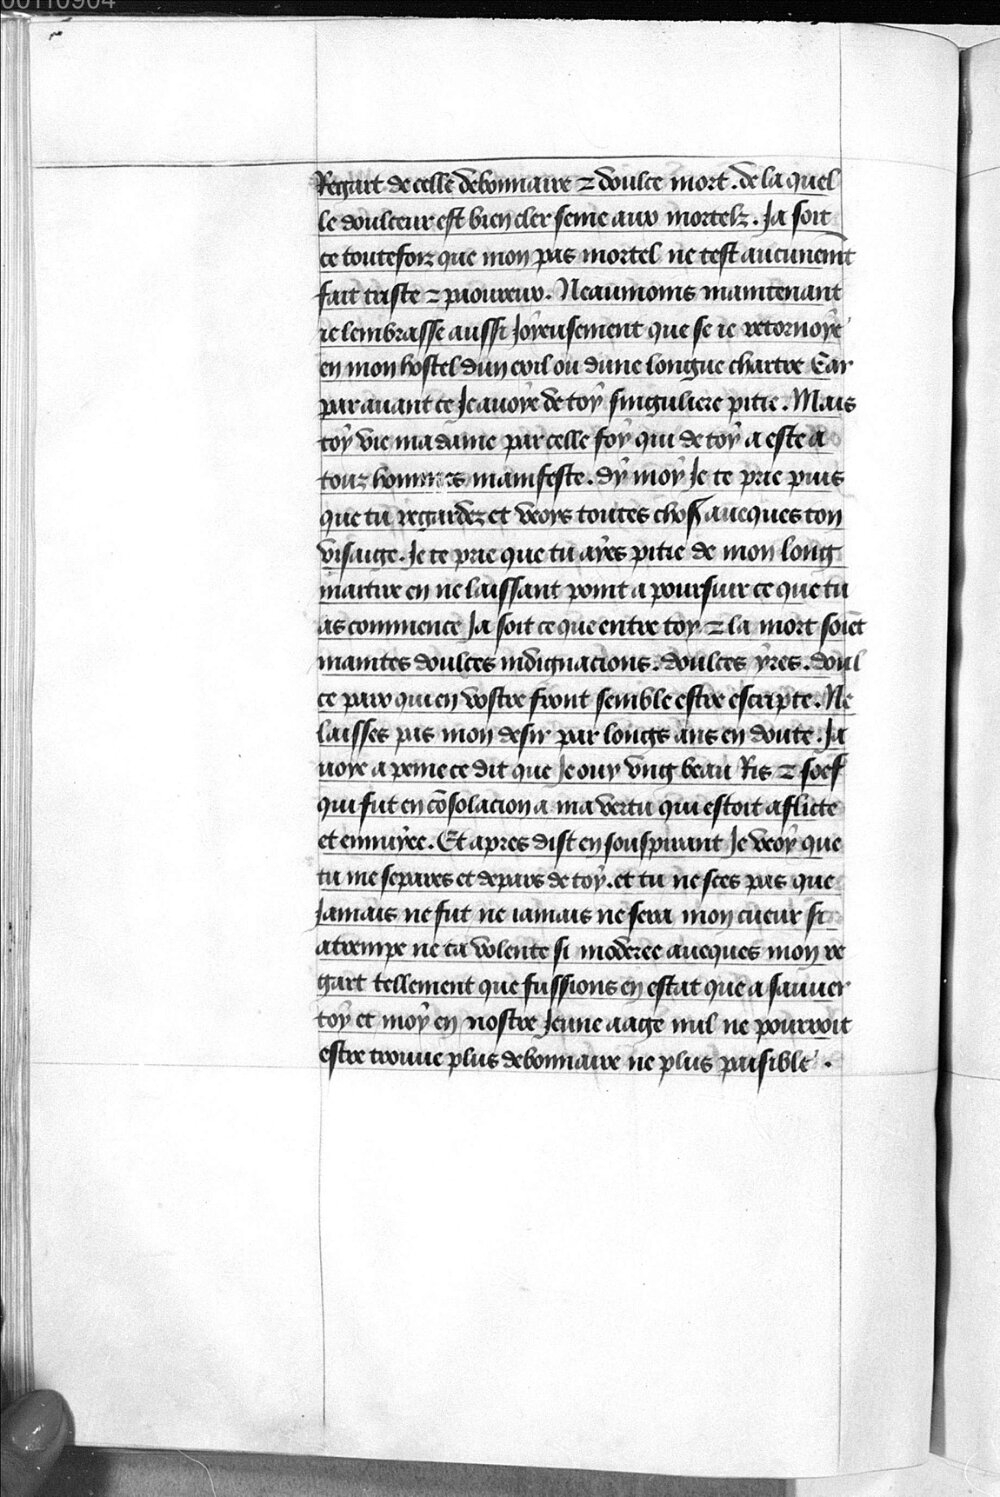 00110904
Regart de celle debonnaire ⁊ doulce mort. de la quel
le doulceur est bien cler seme aux mortelz. Ja soit
ce toutefoiz que mon pas mortel ne test aucunemt̄
fait triste ⁊ paoureux. Neaumoins maintenant
ie lembrasse aussi Joyeusement que se ie retornoye
en mon hostel dun exil ou dune longue chartre Car
par auant ce Je auoye de toy singuliere pitie. Mais
toy vie madame par celle foy qui de toy a este a
touz hommes manifeste. dy moy Je te prie puis
que tu regardez et veoys toutes choses auecques ton
visaige. Je te prie que tu ayes pitie de mon long
martire en ne laissant point a poursuir ce que tu
as commence Ja soit ce que entre toy ⁊ la mort soiēt
maintes doulces indignacions. doulces yres. doul
ce paix qui en vostre front semble estre escripte. Ne
laisses pas mon desir par longs ans en doute. Ja
uoye a peine ce dit que Je ouy vng beau Ris ⁊ soef
qui fut en cōsolacion a ma vertu qui estoit aflicte
et ennuyee. Et apres dist en souspirant Je veoy que
tu me separes et depars de toy. et tu ne sces pas que
Jamais ne fut ne iamais ne sera mon cueur si
atrempe ne ta volente si moderee auecques mon re
gart tellement que fussions en estat que a sauuer
toy et moy en nostre Jeune aage nul ne pourroit
estre trouue plus debonnaire ne plus paisible.